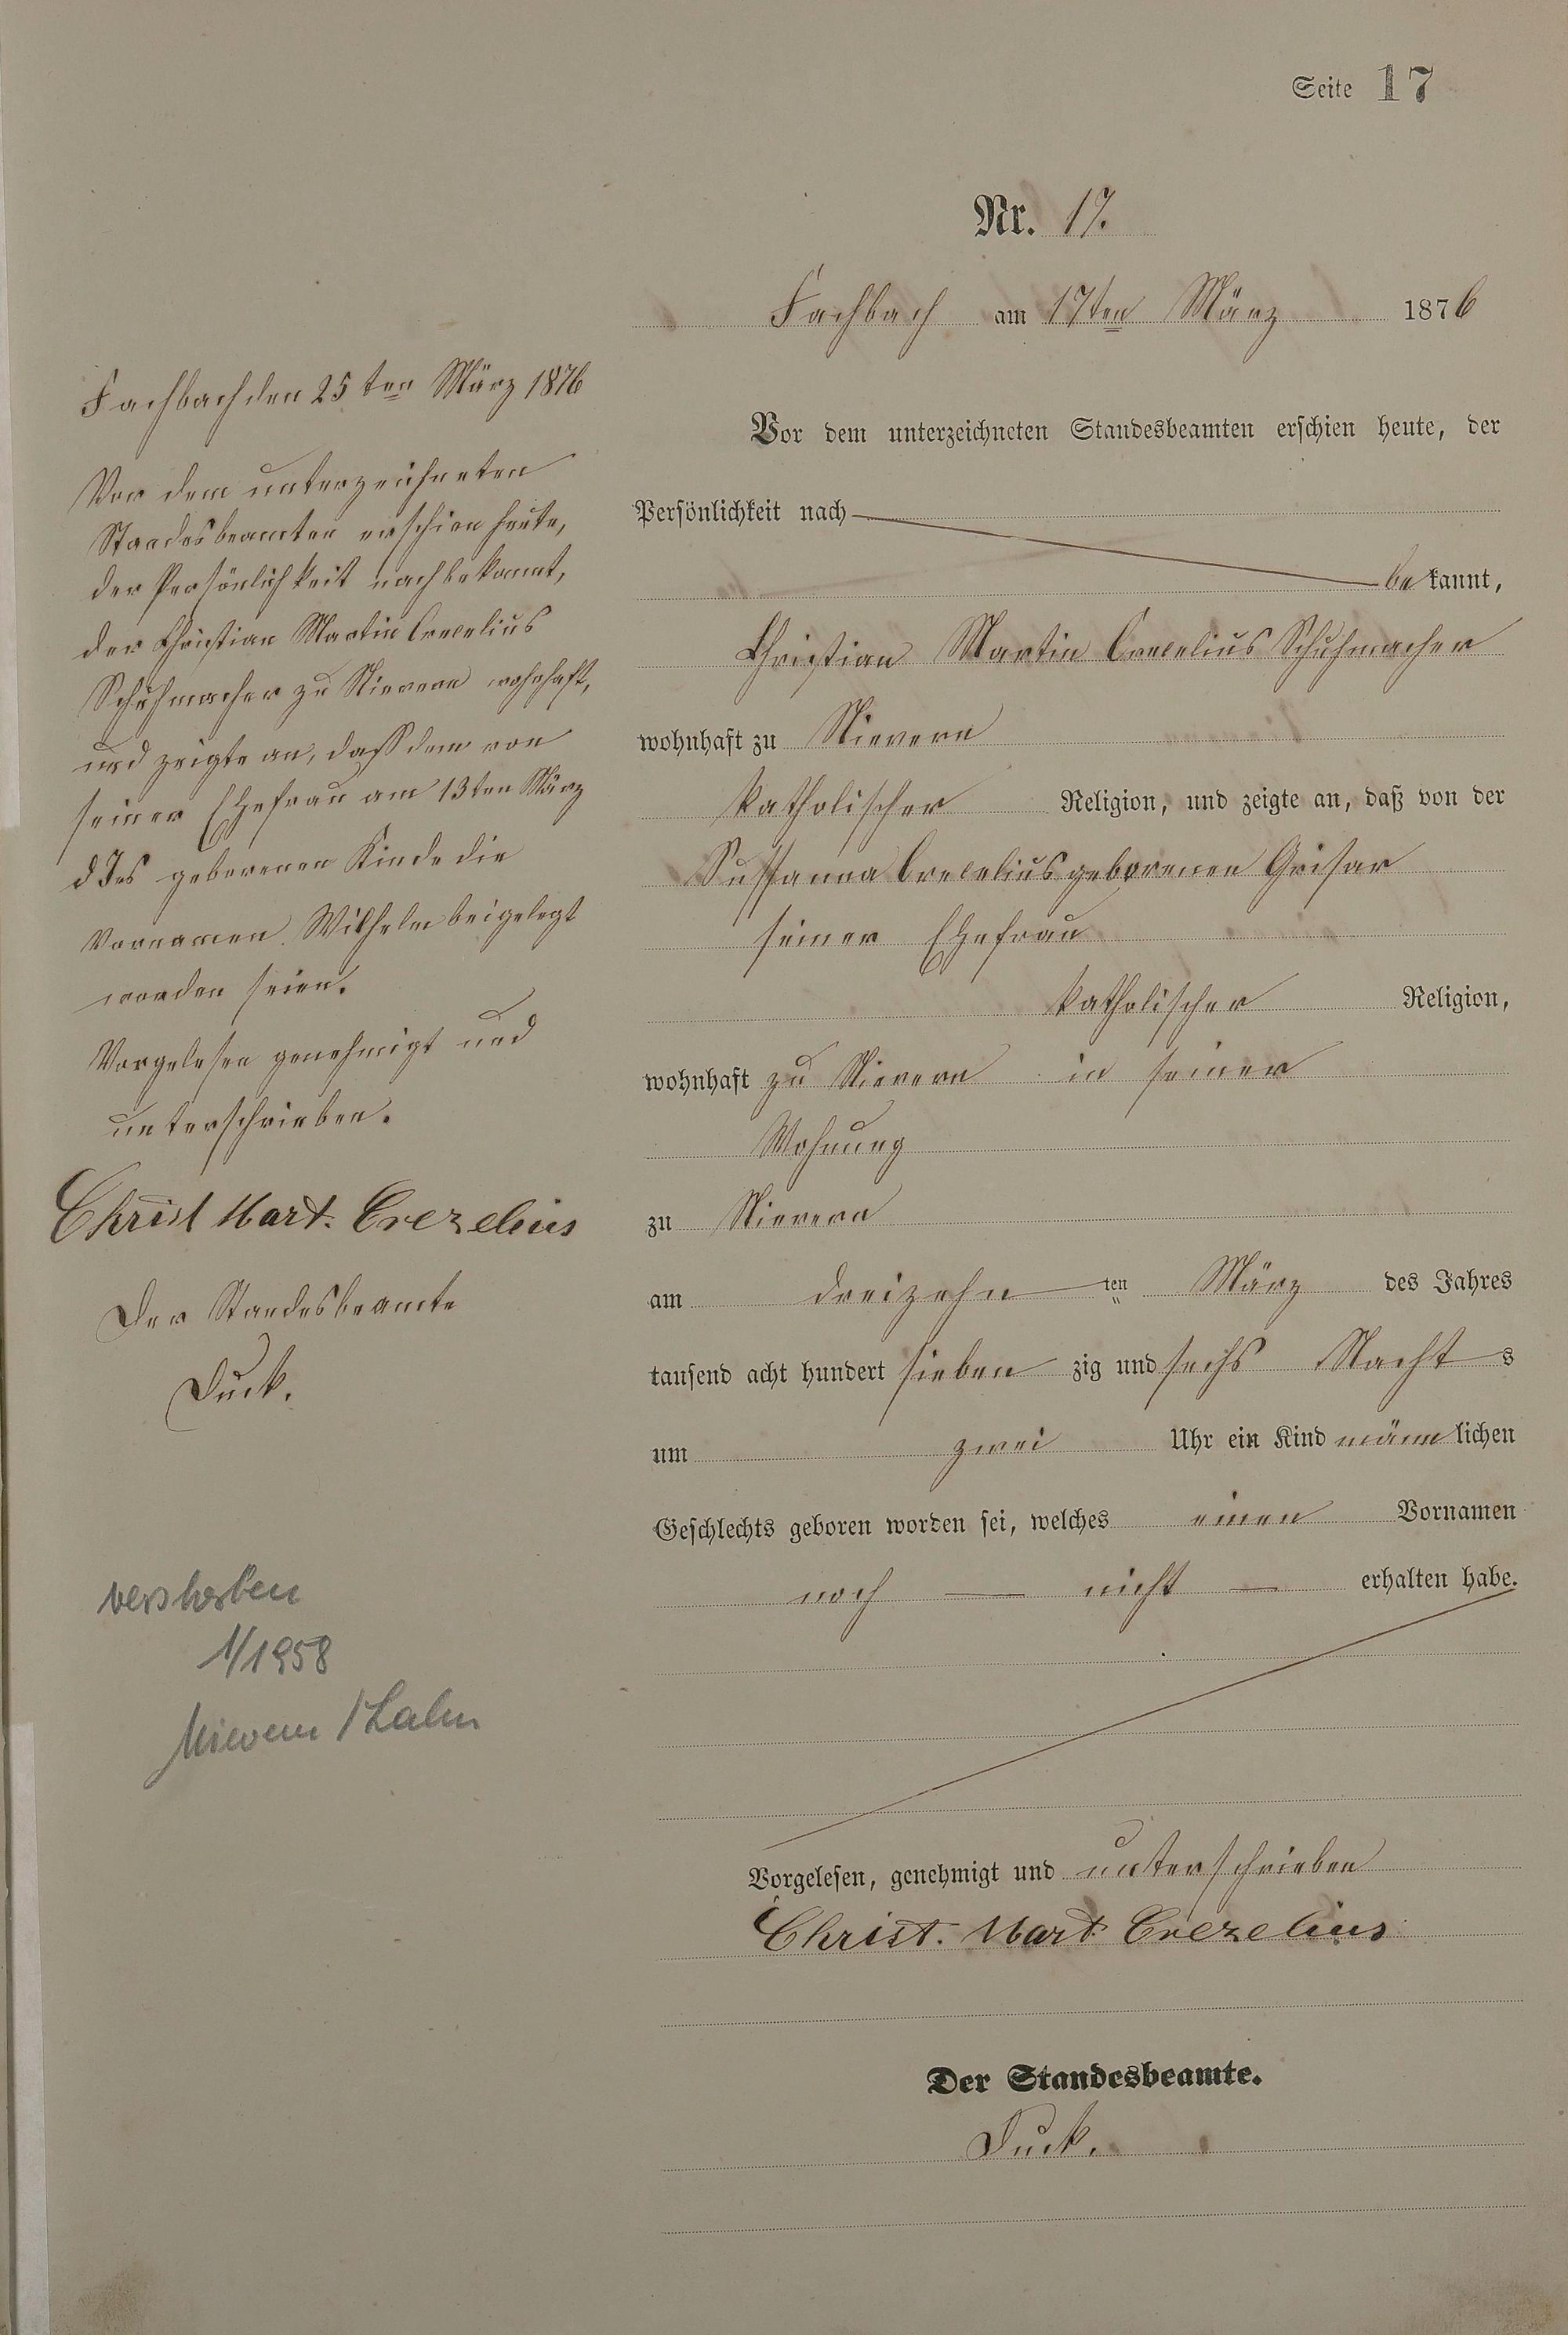 Seite 17
Nr. 17.
Fachbach am 17ten März 1876
Vor dem unterzeichneten Standesbeamten erschien heute, der
Persönlichkeit nach
bekannt,
Christian Martin Crecelius Schuhmacher
wohnhaft zu Nievern
katholischer Religion, und zeigte an, daß von der
Sussanna Crecelius geborenen Grisar
seiner Ehefrau
katholischer Religion,
wohnhaft zu Nievern in seiner
Wohnung
zu Nievern
am dreizehn ten März des Jahres
tausend acht hundert sieben zig und sechs Nachts
um zwei Uhr ein Kind männlichen
Geschlechts geboren worden sei, welches einen Vornamen
noch — nicht — erhalten habe.
Vorgelesen, genehmigt und unterschrieben
Christ. Mart Crezelius
Der Standesbeamte.
Duck.
Fachbach den 25ten März 1876
Vor dem unterzeichneten
Standesbeamten erschien heute,
der Persönlichkeit nach bekannt,
der Christian Martin Crecelius
Schuhmacher zu Nievern wohnhaft,
und zeigte an, dass dem von
seiner Ehefrau am 13ten März
d Js geborenen Kinde die
Vornamen Wilhelm beigelegt
worden seien.
Vorgelesen genehmigt und
unterschrieben.
Christ Mart. Crezelius
Der Standesbeamte
Duck.
verstorben
1/1958
Nievern / Lahn